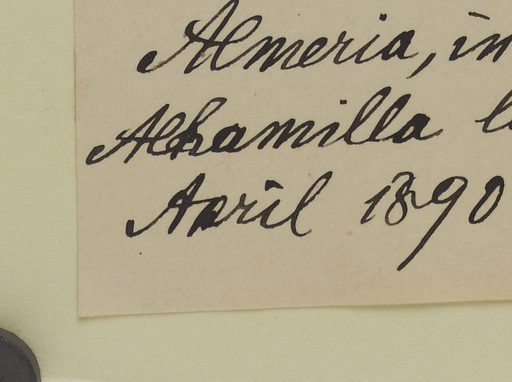 Almeria, in
Alhamilla
April 1890